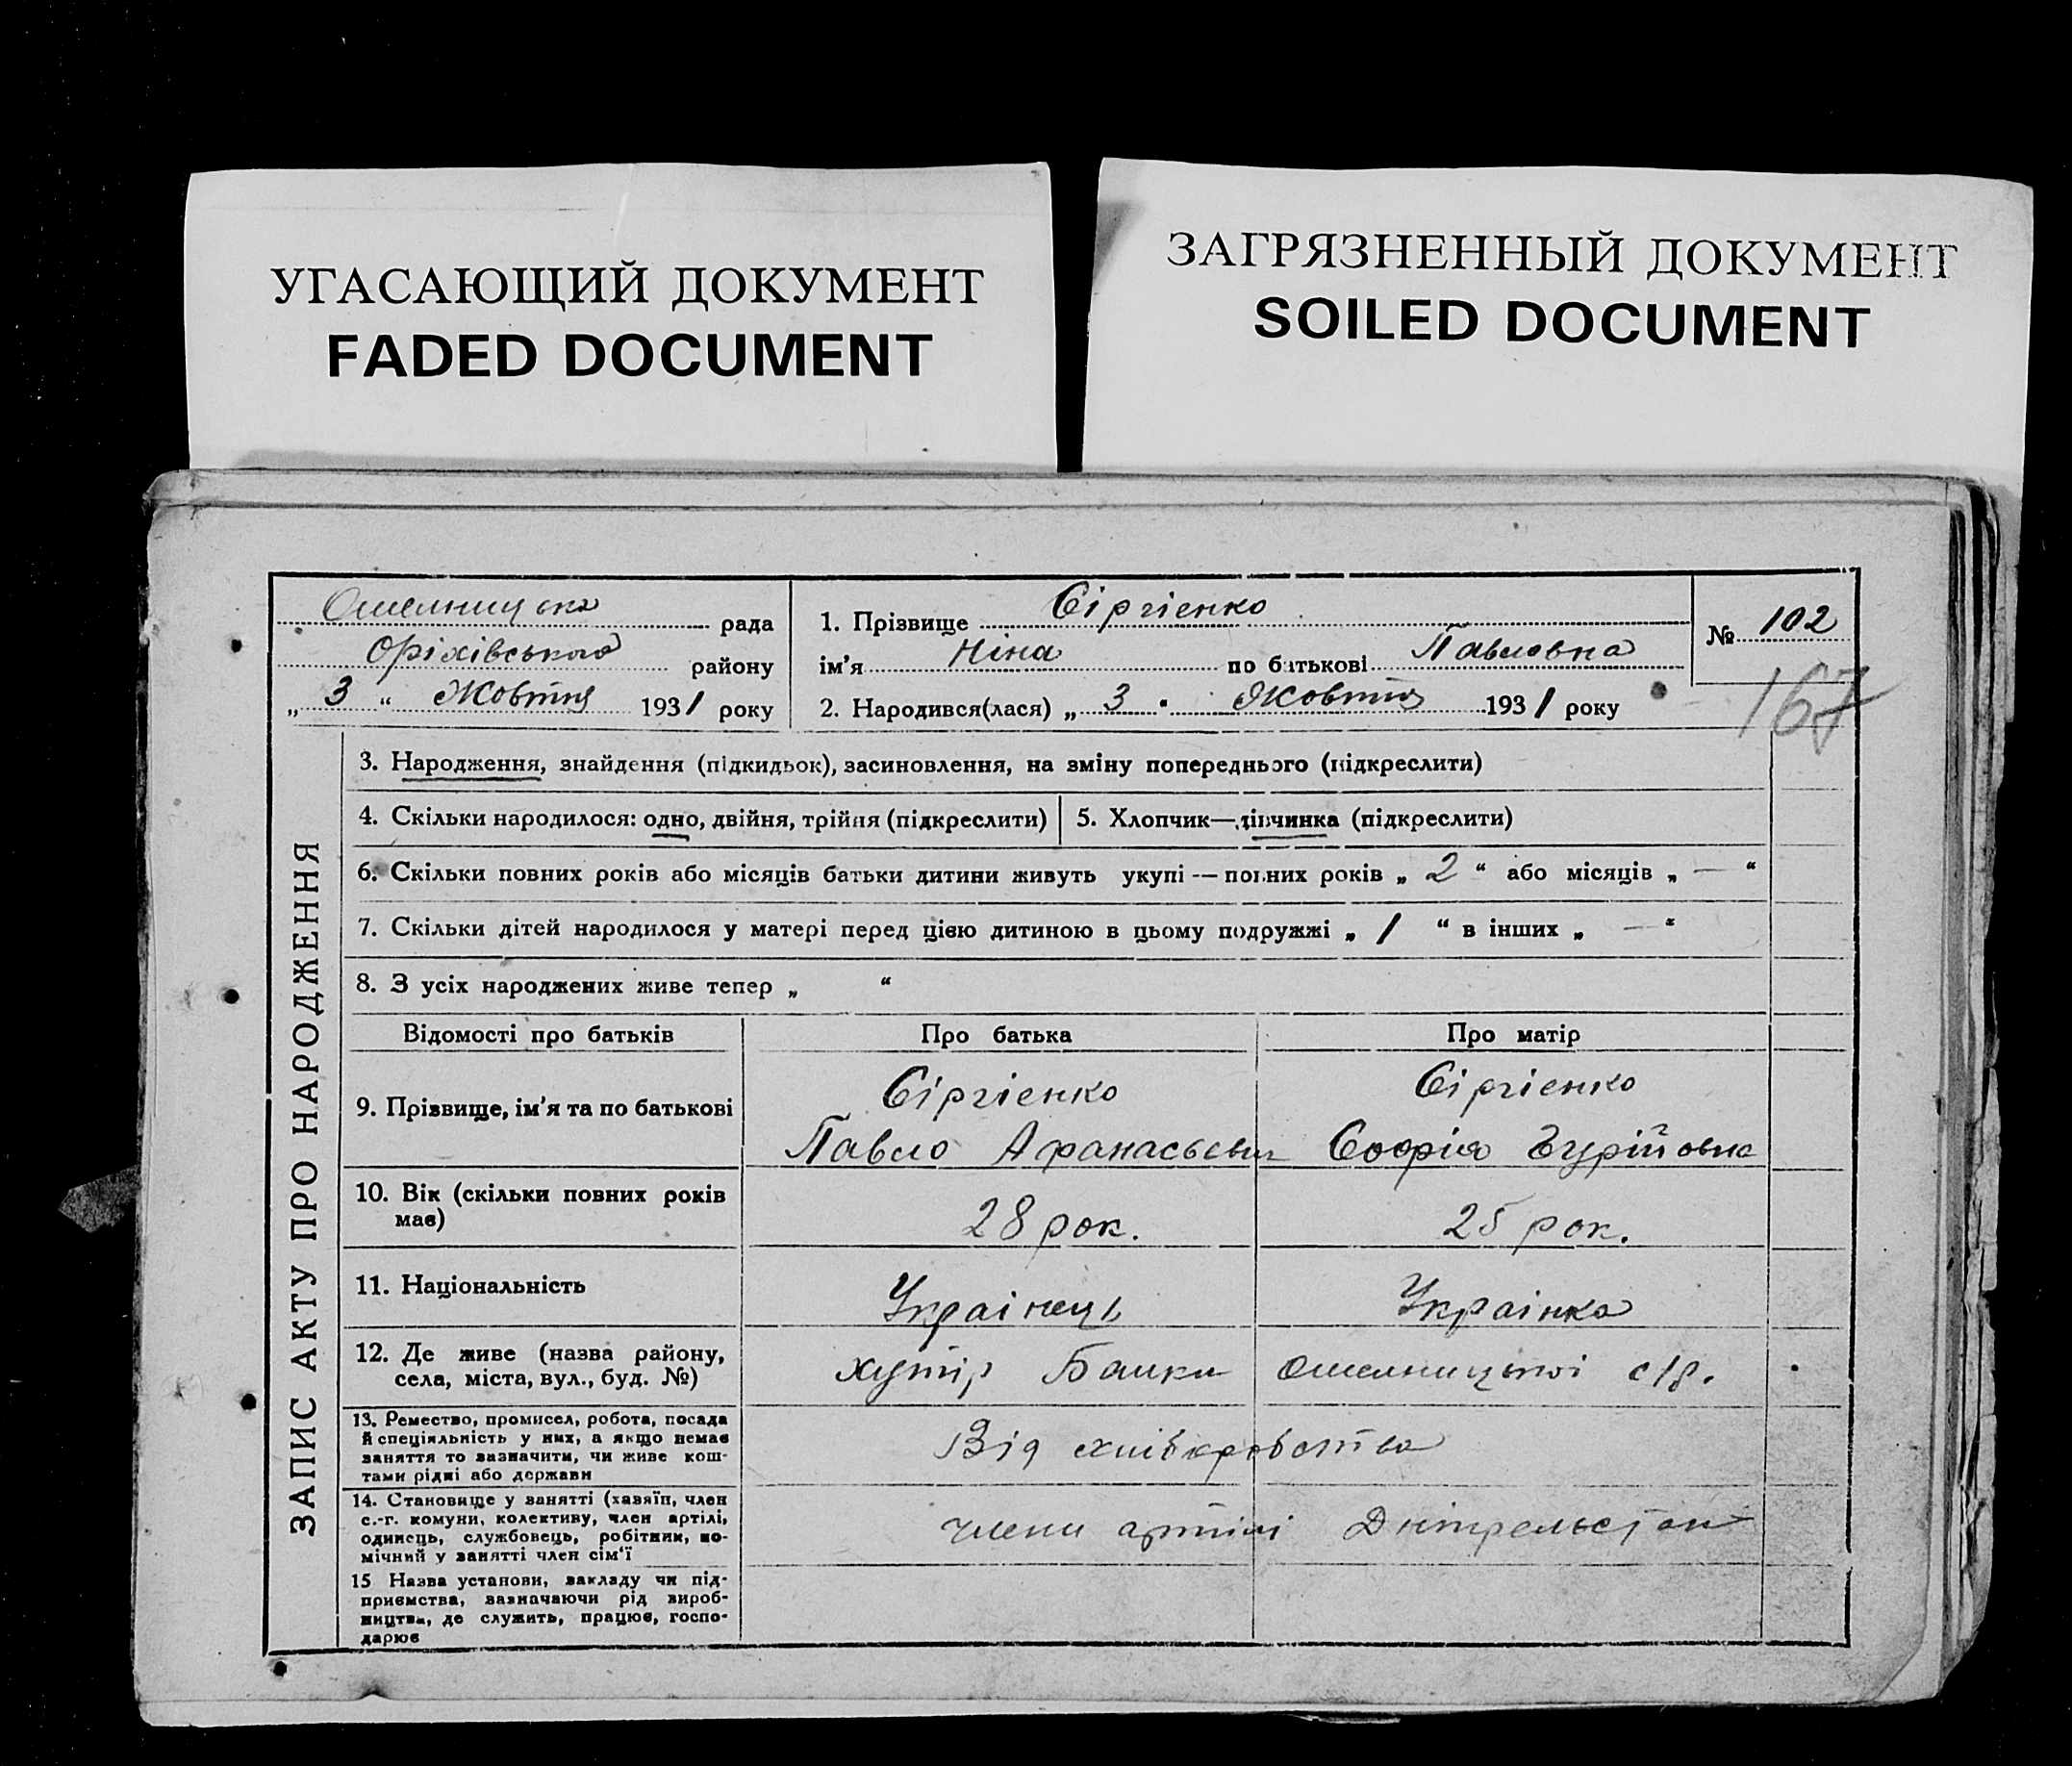 УГАСАЮЩИЙ ДОКУМЕНТ
FADED DOCUMENT
ЗАГРЯЗНЕННЫЙ ДОКУМЕНТ
SOILED DOCUMENT
Омельницька рада
Оріхівського району
„ 3 “ Жовтня 1931 року
1. Прізвище Сіргіенко
ім’я Ніна по батькові Павловна
2. Народився(лася) „ 3 " Жовтня 1931 року
№ 102
167
ЗАПИС АКТУ ПРО НАРОДЖЕННЯ
3. Народження, знайдення (підкидьок), засиновлення, на зміну попереднього (підкреслити)
4. Скільки народилося: одно, двійня, трійня (підкреслити)
5. Хлопчик—дівчинка (підкреслити)
6. Скільки повних років або місяців батьки дитини живуть укупі — повних років „ 2 “ або місяців „ — “
7. Скільки дітей народилося у матері перед цією дитиною в цьому подружжі „ 1 “ в інших „ — “
8. З усіх народжених живе тепер „ “
Відомості про батьків Про батька Про матір
9. Прізвище, ім’я та по батькові
Сіргіенко
Павло Афанасьевич
Сіргіенко
Софія
10. Вік (скільки повних років
має)
28 рок.
25 рок.
11. Національність
Украінець
Украінка
12. Де живе (назва району,
села, міста, вул., буд. №)
хутір Балки Омельницької с/р.
13. Ремество, промисел, робота, посада
й спеціяльність у них, а якщо немає
заняття то зазначити, чи живе кош-
тами рідні або держави
Від хліборобства
14. Становище у занятті (хазяїн, член
с.-г. комуни, колективу, член артілі,
одинець, службовець, робітник, по-
мічний у занятті член сім’ї
члени артілі
15 Назва установи, закладу чи під-
приємства, зазначаючи рід вироб-
ництва, де служить, працює, госпо-
дарює